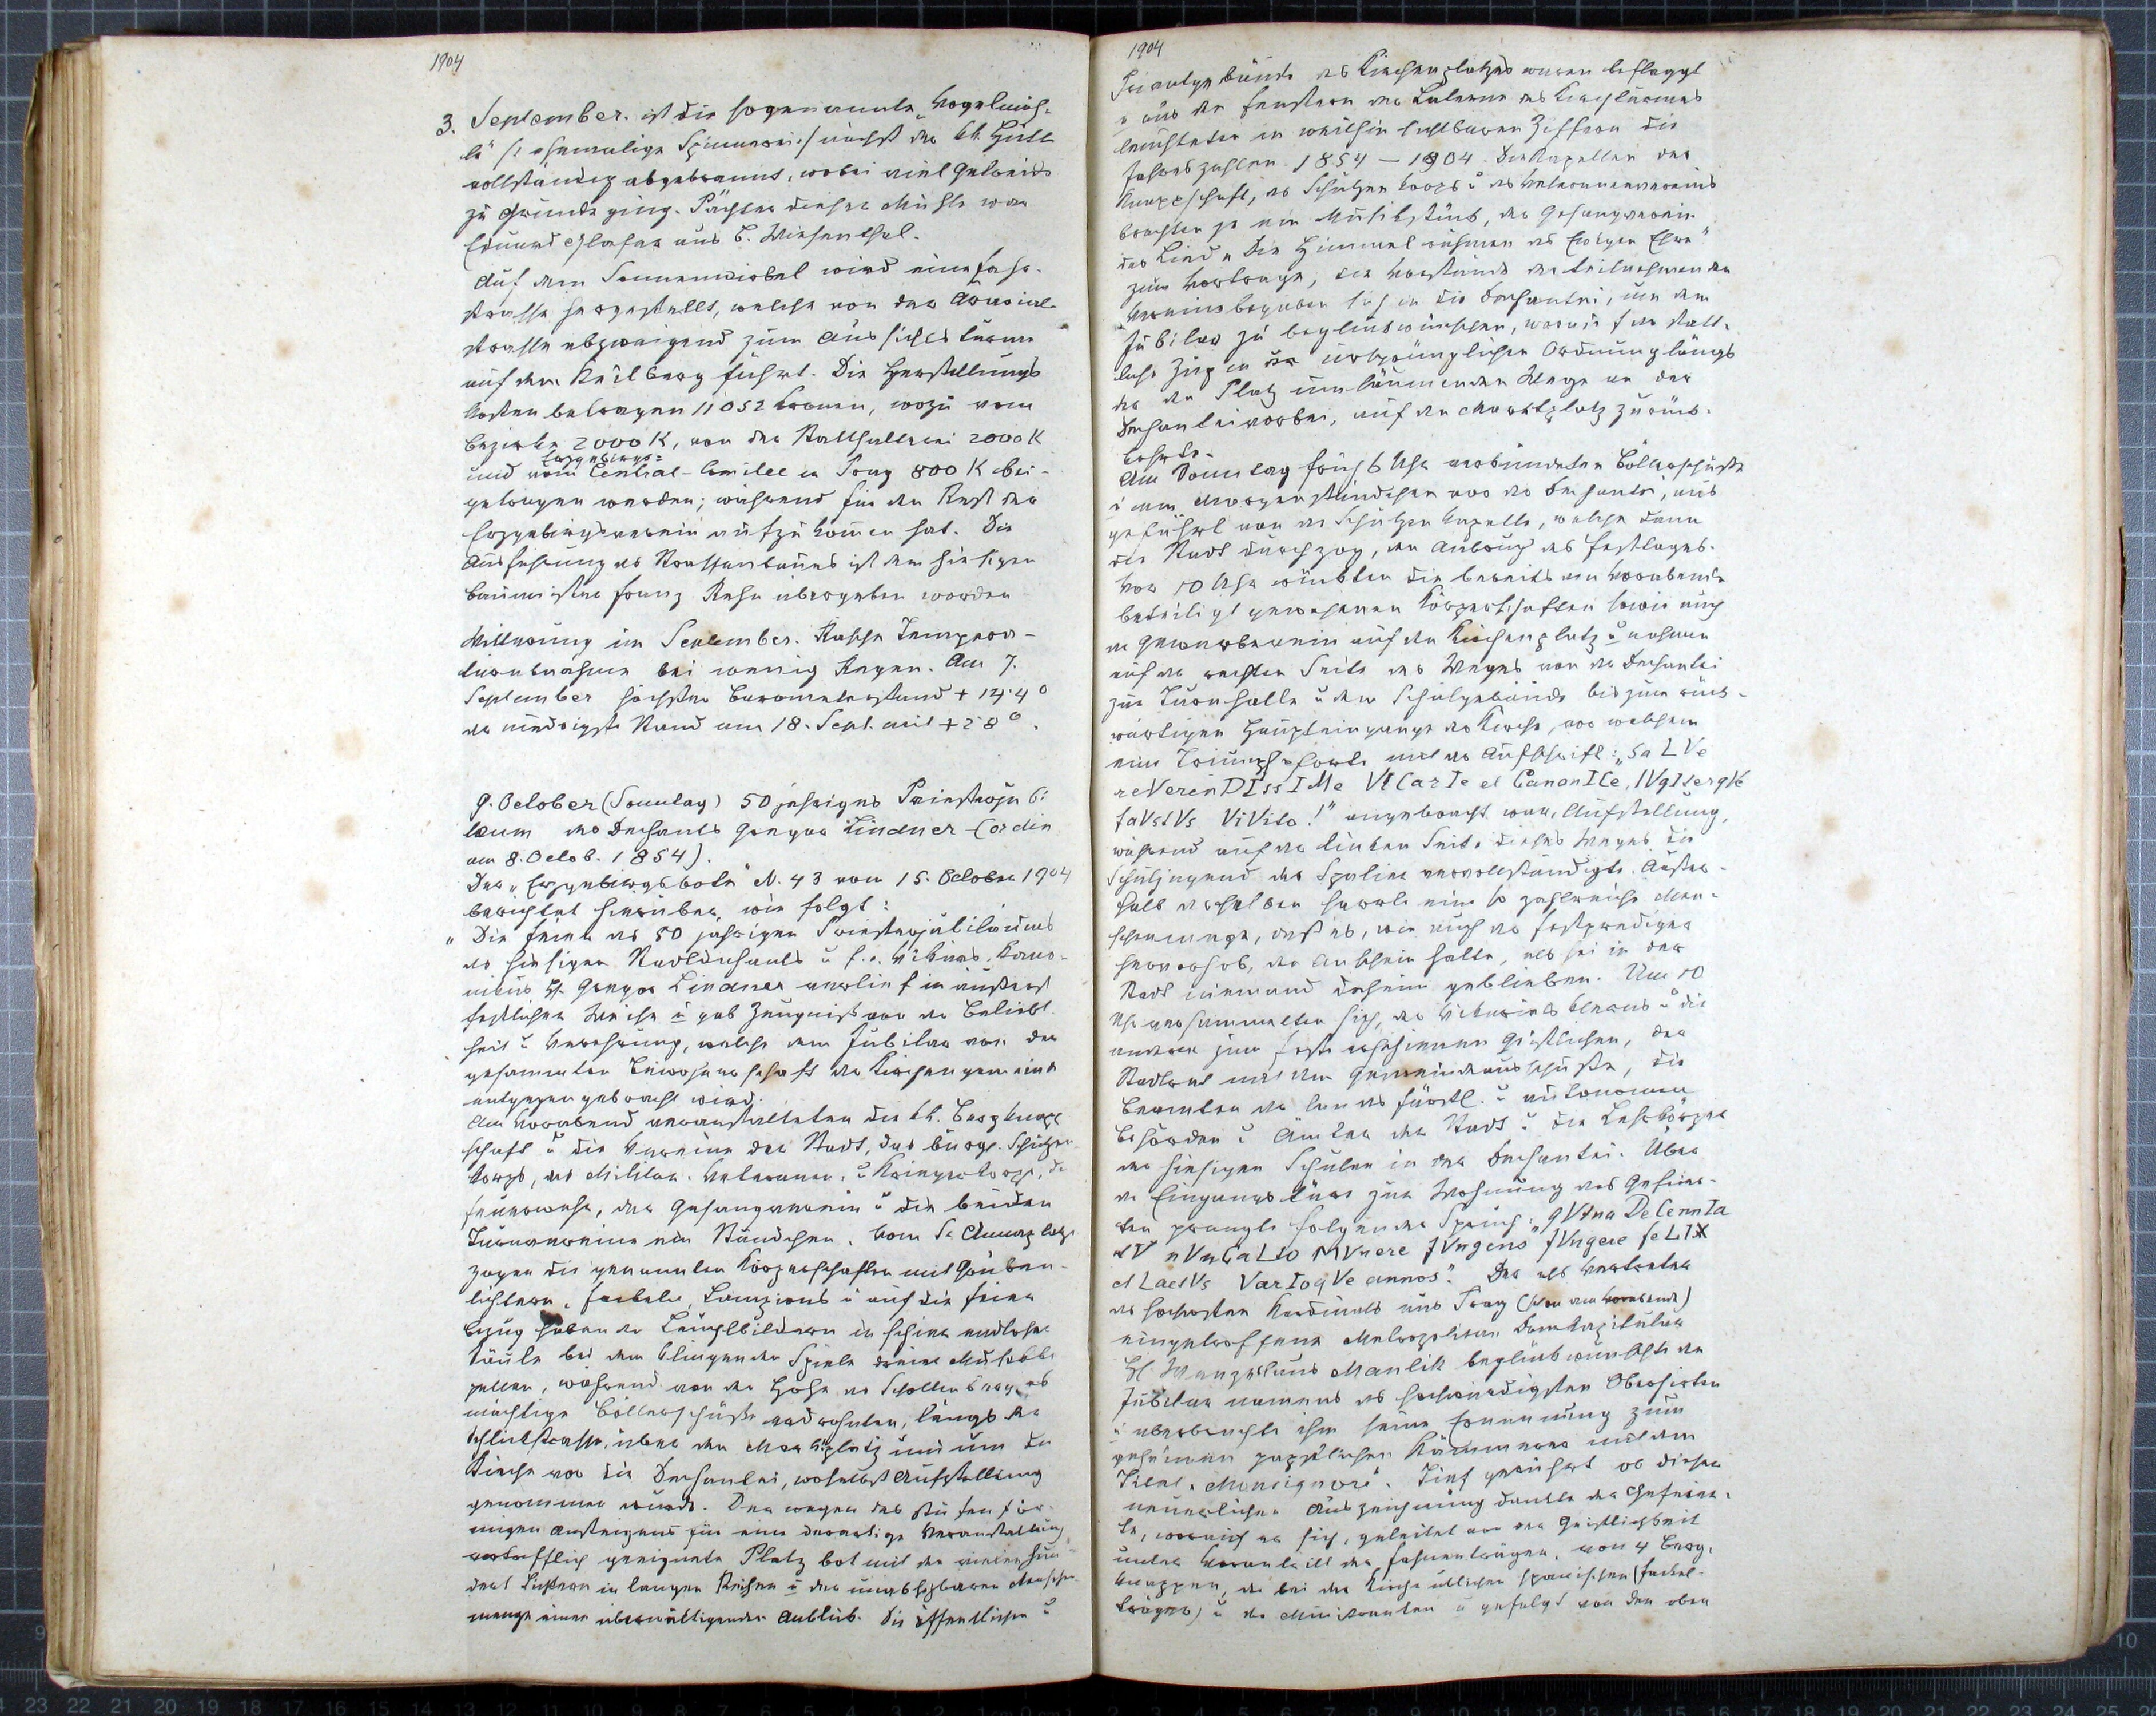 1904
3. September. ist die sogenannte „Vogelmüh-
le" (: ehemalige Spinnerei :) nächst der kk. Hütte
vollständig abgebrannt, wobei viel Getreide
zu Grunde ging. Pächter dieser Mühle war
Eduard Glaser aus B. Wiesenthal.
Auf dem Sonnenwirbel wird eine Fahr-
strasse hergestellt, welche von der Ärarial-
strasse abzweigend zum Aussichtsturme
auf dem Keilberg führt. Die Herstellungs
kosten betragen 11052 Kronen, wozu vom
Bezirke 2000 K, von der Statthalterei 2000 K
und vom Erzgebirgs-Central-Comitee in Prag 800 K bei-
getragen werden; während für den Rest der
Erzgebirgsverein aufzukommen hat. Die
Ausführung des Strassenbaues ist dem hiesigen
Baumeister Franz Rehn übergeben worden
Witterung im September. Rasche Tempera-
turabnahme bei wenig Regen. Am 7.
September höchster Barometerstand + 14·4°
der niedrigste Stand am 18. Sept. mit + 2·8°.
9. October (Sonntag) 50 jähriges Priesterjubi
laeum des Dechants Gregor Lindner (ordin
am 8. Octob. 1854).
Der „Erzgebirgsbote" N. 43 vom 15. October 1904
berichtet hierüber wie folgt:
„Die Feier des 50 jährigen Priesterjubiläums
des hiesigen Stadtdechants u f.e. Vikärs, Kano-
nikus H. Gregor Lindner verlief in äußerst
festlicher Weise u gab Zeugnis von der Beliebt
heit u Verehrung, welche dem Jubilar von der
gesammten Einwohnerschaft der Kirchengemeinde
entgegengebracht wird.
Am Vorabend veranstalteten die kk. Bergknapp
schaft u die Vereine der Stadt, das bürgl. Schützen
korps, das Militär-Veteranen- u Kriegerkorps, die
Feuerwehr, der Gesangverein u die beiden
Turnvereine ein Ständchen. Vom St Annaplatze
zogen die genannten Körperschaften mit Gruben-
lichtern, Fackeln, Lampions u auf die Feier
bezug habenden Leuchtbildern in schier endloser
Säule bei dem klingenden Spiele dreier Musikka
pellen, während von der Höhe des Schottenberges
mächtige Böllerschüße erdröhnten, längs der
über den Marktplatz und um die
Kirche vor die Dechantei, woselbst Aufstellung
genommen wurde. Der wegen des stufenför-
migen Ansteigens für eine derartige Veranstaltung
vortrefflich geeignete Platz bot mit den vielen hun
dert Lichtern in langen Reihen u der unabsehbaren Menschen-
menge einen überwältigenden Anblick. Die öffentlichen u
1904
Privatgebäude des Kirchenplatzes waren beflaggt
u aus den Fenstern der Laterne des Kirchturmes
leuchteten in weithin sichtbaren Ziffern die
Jahreszahlen 1854 — 1904. Die Kapellen der
Knappschaft, des Schützenkorps u des Veteranenvereines
brachten je ein Musikstück, der Gesangverein
das Lied „Die Himmel rühmen des Ewigen Ehre"
zum Vortrage, die Vorstände der teilnehmenden
Vereine begaben sich in die Dechantei, um den
Jubilar zu beglückwünschen, worauf der statt-
liche Zug in der ursprünglichen Ordnung längs
des den Platz umsäumenden Weges an der
Dechantei vorbei, auf den Marktplatz zurück-
kehrte.
Am Sonntag früh 6 Uhr verkündeten Böllerschüße
u ein Morgenständchen vor der Dechantei, aus
geführt von der Schützenkapelle, welche dann
die Stadt durchzog, den Anbruch des Festtages.
Vor 10 Uhr rückten die bereits am Vorabende
beteiligt gewesenen Körperschaften sowie auch
der Gewerbeverein auf den Kirchenplatz u nahmen
auf der rechten Seite des Weges von der Dechantei
zur Turnhalle u dem Schulgebäude bis zum rück-
wärtigen Haupteingange der Kirche, vor welchem
eine Triumphpforte mit der Aufschrift: „SaLVe
reVerenDIssIMe VICarIe et CanonICe,
faVstVs ViVito!" angebracht war, Aufstellung,
während auf der linken Seite dieses Weges die
Schuljugend das Spalier vervollständigte. Außer-
halb desselben harrte eine so zahlreiche Men-
schenmenge, daß es, wie auch der Festprediger
hervorhob, den Anschein hatte, als sei in der
Stadt niemand daheim geblieben. Um 10
Uhr versammelten sich der Vikariatsklerus u die
anderen zum Feste erschienenen Geistlichen, der
Stadtrat mit dem Gemeindeausschuße, die
Beamten der landesfürstl. u autonomen
Behörden u Ämter der Stadt u die Lehrkörper
der hiesigen Schulen in der Dechantei. Über
der Eingangstüre zur Wohnung des Gefeier-
ten prangte folgender Spruch: „qVIna DeCennIa
MVnere fVngens fVngere feLIX
et LaetVs VarIoqVe annos". Der als Vertreter
des hochwsten Kardinals aus Prag (schon am Vorabende)
eingetroffene Metropolitan Domkapitular
H. Wenzeslaus Manlik beglückwünschte den
Jubilar namens des hochwürdigsten Oberhirten
u überbrachte ihm seine Ernennung zum
geheimen päpstlichen Kämmerer mit dem
Titel „Monsignore". Tief gerührt ob dieser
neuerlichen Auszeichnung dankte der Gefeier-
te, wornach er sich, geleitet von der Geistlichkeit
unter Vorantritt der Fahnenträger, von 4 Berg-
knappen, der bei der Kirche üblichen (Fackel-
träger) u der Ministranten u gefolgt von den oben